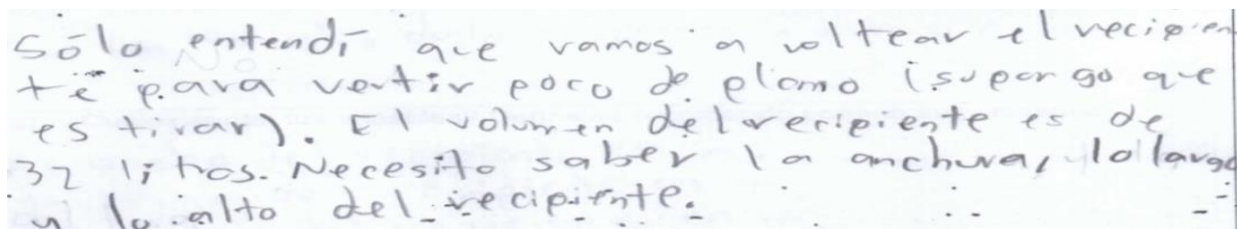 Sólo entendí que vamos a voltear el recipien
te para vertir poco de plomo (supongo que
es tirar). El volumen del recipiente es de
32 litros. Necesito saber la anchura, lo largo
y lo alto del recipiente.